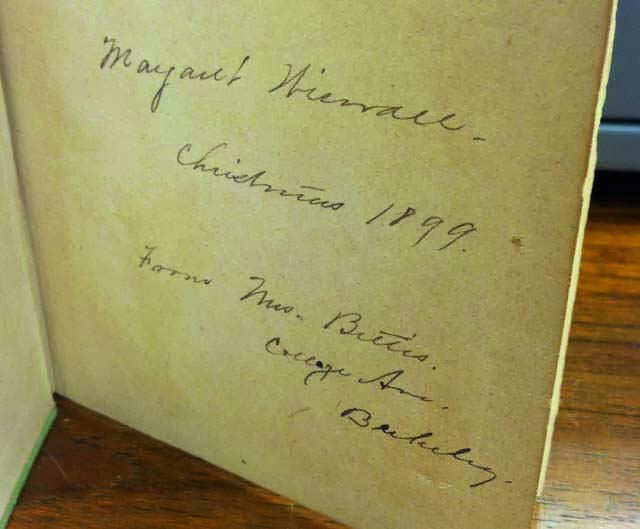 Margaret
Christmas 1899.
From Mrs. Bettis.
College Ave.
Berkeley.